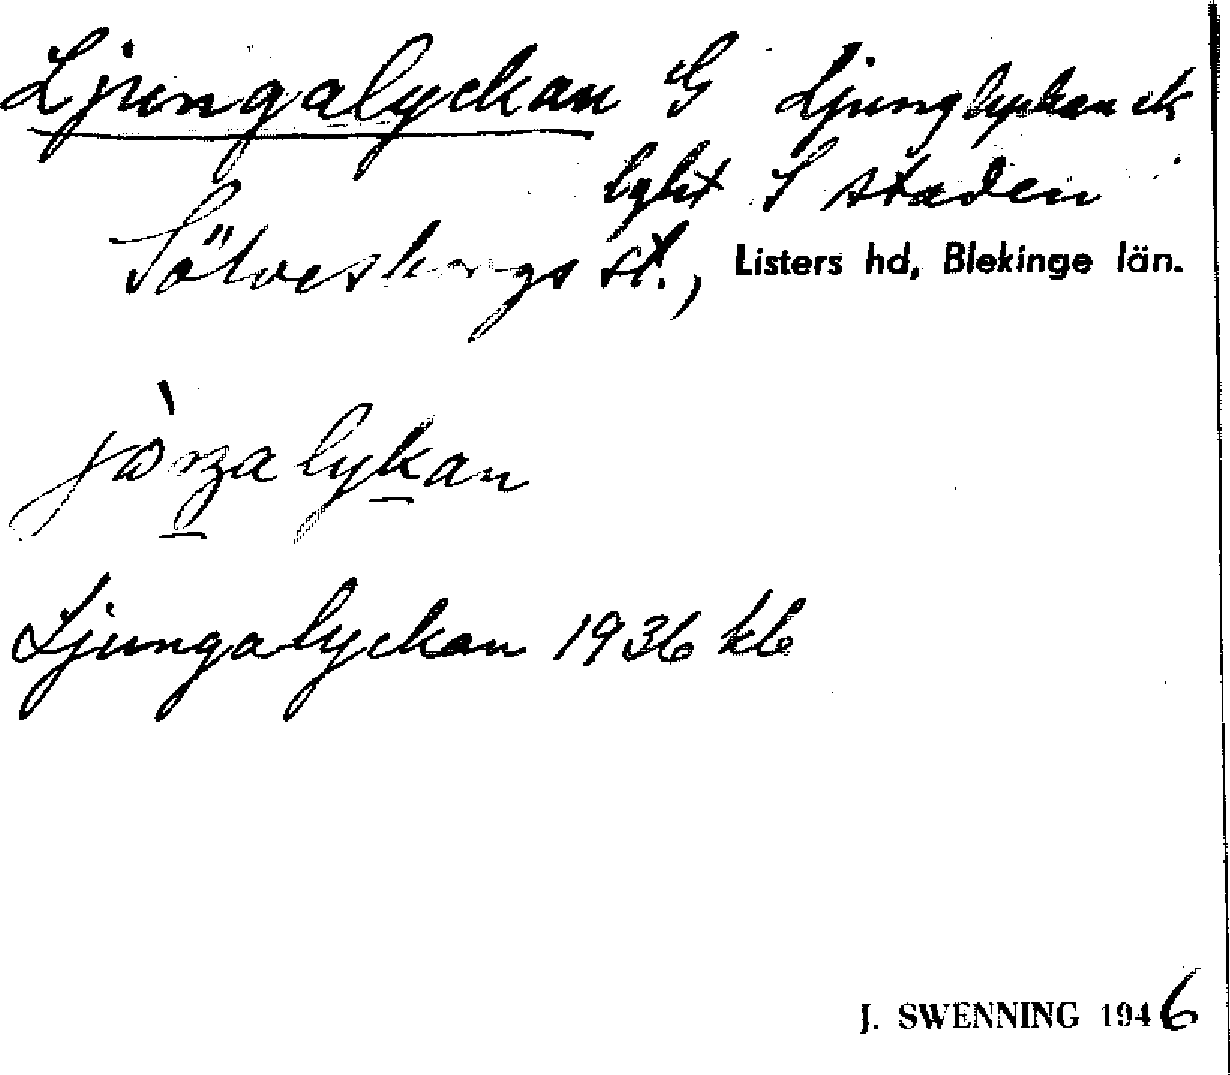 Ljungalyckan G Ljunglyckan ek
lght S staden
Sölvesborgs st., Listers hd, Blekinge län.
lykan
Ljungalyckan 1936 kb
J. SWENNING 1946